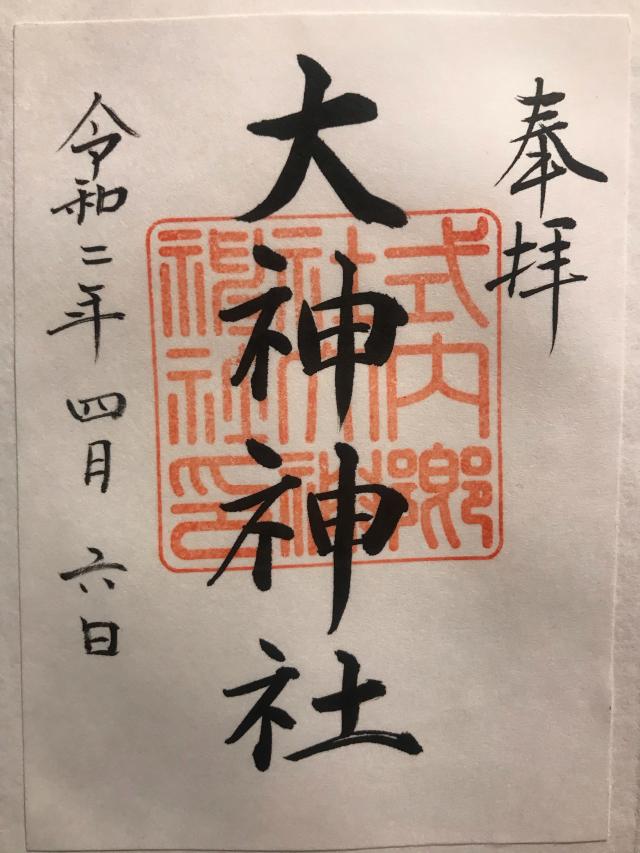 奉拝
大神神社
式内郷
社大神
神社印
令和二年四月六日